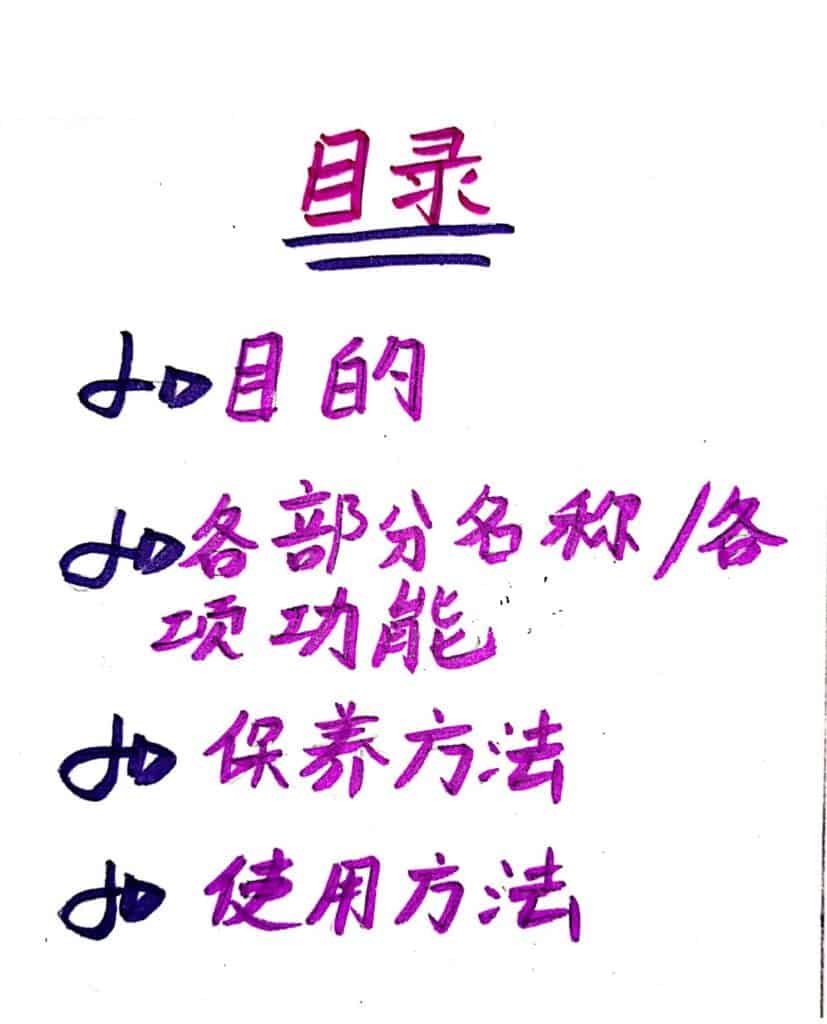 目录
目的
各部分名称/各
项功能
保养方法
使用方法